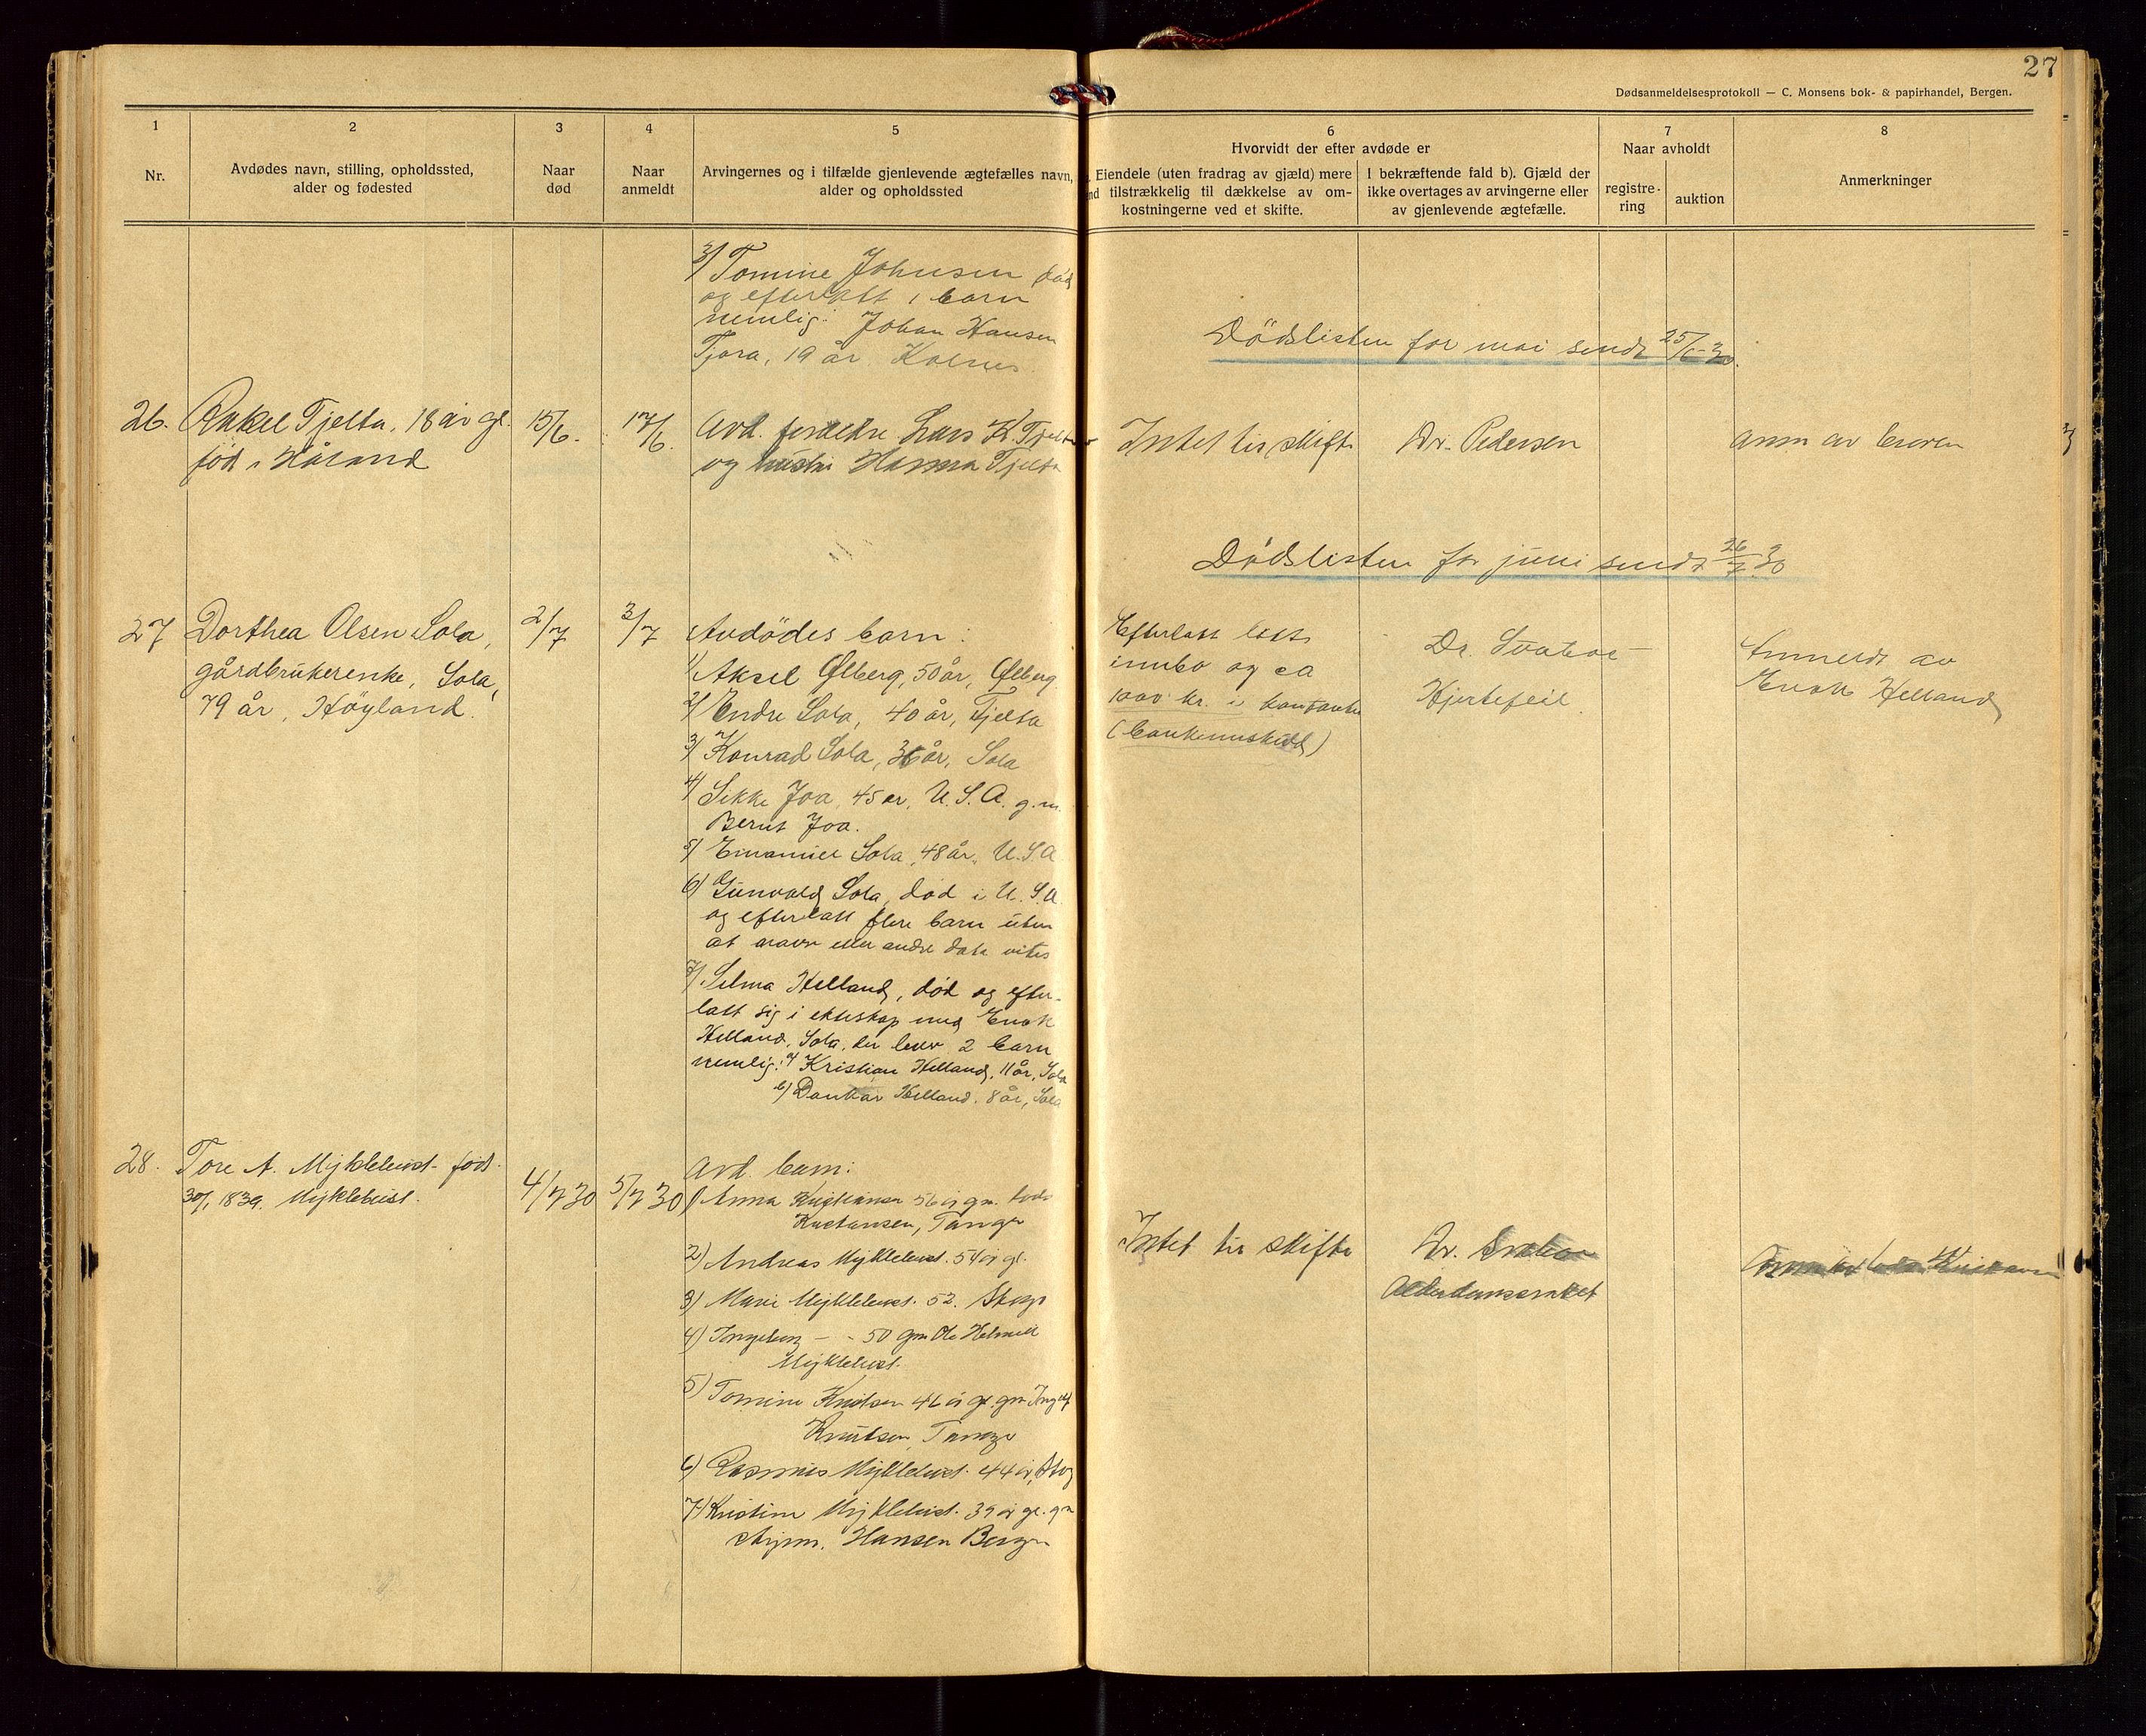 27
Dødsanmeldelsesprotokoll — C. Monsens bok- & papirhandel, Bergen.
1
2
3
4
5
6
7
8
Nr.
Avdødes navn, stilling, opholdssted,
alder og fødested
Naar
død
Naar
anmeldt
Arvingernes og i tilfælde gjenlevende ægtefælles navn,
alder og opholdssted
Hvorvidt der efter avdøde er
Eiendele (uten fradrag av gjæld) mere
nd tilstrækkelig til dækkelse av om-
kostningerne ved et skifte.
I bekræftende fald b). Gjæld der
ikke overtages av arvingerne eller
av gjenlevende ægtefælle.
Naar avholdt
registre-
ring
auktion
Anmerkninger
3) Tomine Johnsen død
og efterlatt 1 barn
nemlig: Johan Hansen
Tjora, 19 år Kolnes
Dödslisten for mai sendt 25/6-30.
26. Rakel Tjelta, 18 år gl.
född i Håland
15/6.
17/6.
Avd. foreldre Lars K. Tjelta
og hustru Hanna Tjelta
Intet til skifte
Dr. Pedersen
anm av broren
Dödslisten for juni sendt 26/7 30
27 Dorthea Olsen Sola,
gårdbrukerenke, Sola,
79 år, Höyland.
2/7
3/7
Avdödes barn:
1) Aksel Ølberg, 50 år, Ølberg
2) Endre Sola, 40 år, Tjelta
3) Konrad Sola, 36 år, Sola
4) Sikke Joa, 45 år, U.S.A. g.m.
Bernt Joa.
5) Emanuel Sola, 48 år, U.S.A
6) Gunvald Sola, död i U.S.A.
og efterlatt flere barn uten
at navn eller andre data vites
7) Selma Helland, död og efter-
latt sig i ekteskap med Enok
Helland, Sola, der lever 2 barn
nemlig: a) Kristian Helland, 11 år, Sola
b) Dankar Helland, 8 år, Sola
Efterlatt litt
innbo og ca
1000 kr. i kontanter
(bankinnskudd)
Dr. Svaboe
Hjertefeil.
Anmeldt av
Enok Helland
28. Tore A. Myklebust född
30/1 1839. Myklebust.
4/7 30
5/7 30
Avd. barn:
1) Anna Kristiansen 56 år gm.
Kristansen, Tanger
2) Andreas Myklebust. 54 år gl.
3) Marie Myklebust. 52.
4) Ingeborg — - 50 gm Ole Helmik
Myklebust.
5) Tomine Knutsen 46 år gl. gm
Knutsen, Tanger
6) Rasmus Myklebust. 44 år,
7) Kristine Myklebust. 39 år gl. gm
Hansen Bergen
Intet til skifte
Dr. Svaboe
Alderdomssvakhet